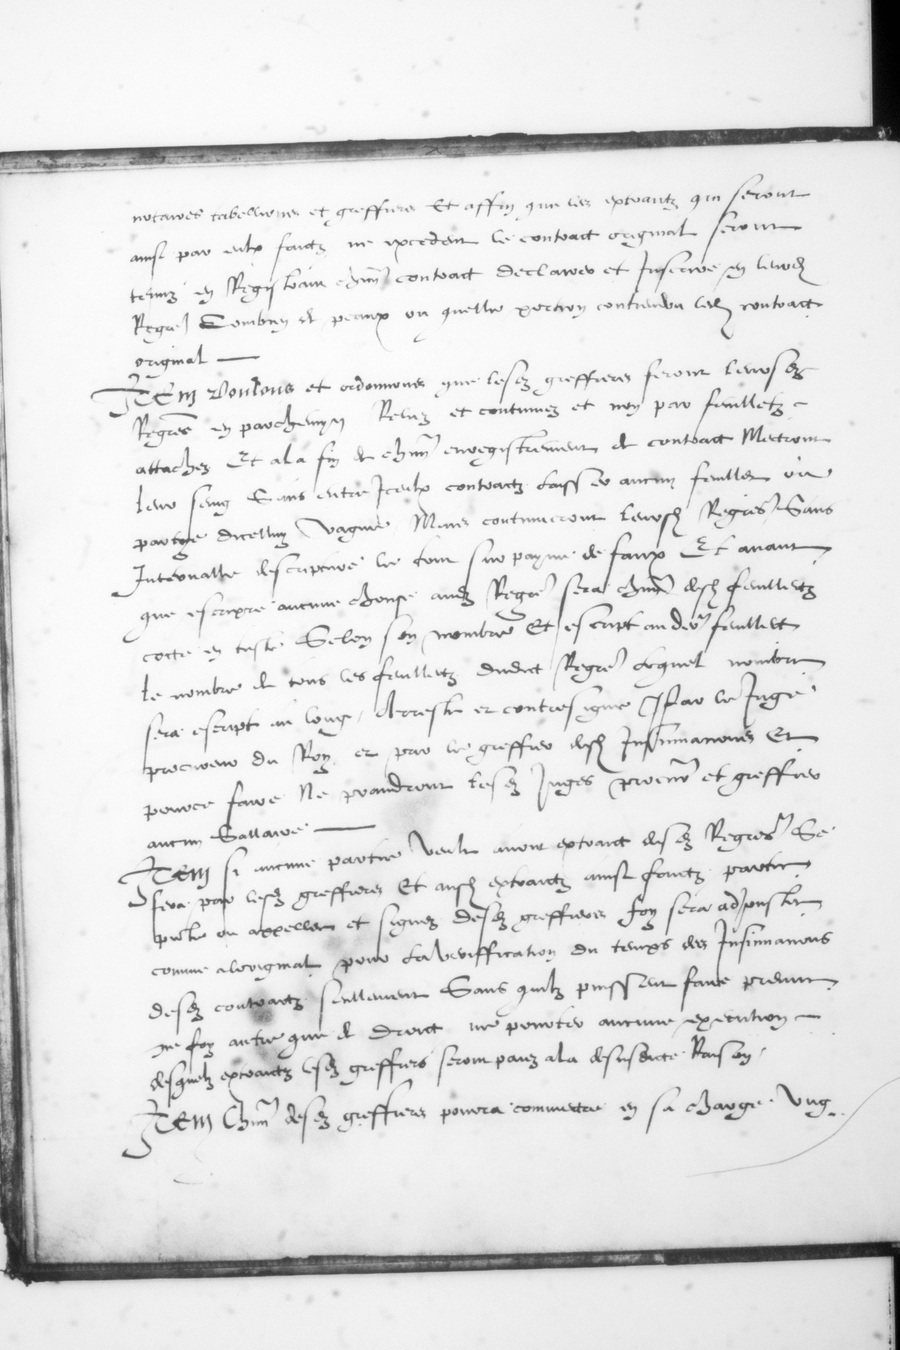 notaires tabellions et greffiers Et affin que les extraictz qui seront
ainsi par eulx faictz ne excedent le contract original seront
tenuz en Registrant chun contract declairer et Inscrire en leursd
Regres Combien de peaux ou quelle portion contiendra led contract
original
ITEM Voulons et ordonnons que lesd greffiers feront leursd
Regres en parchemyn Reliez et continuez et non par feuilletz
attachez Et a la fin de chun enregistrement de contract Mectront
leur seing Sans entre Iceulx contractz laisser aucun feuillet ou
partye dicelluy vague Mais continueront leursd Regres Sans
Intervalle descripture le tout sur payne de faulx Et avant
que escripre aucune chouse ausd Regres sera chun desd feuilletz
cotte en teste Selon son nombre Et escript au der feuillet
le nombre de tous les feuilletz dudict Regre lequel nombre
sera escript au long, et contresigne par le Juge
procureur du Roy et par le greffier desd Insinuations Et
pource faire Ne prandront lesd Juges procur et greffier
aucun Sallaire
ITEM Si aucune partie veult avoir extraict desd Regres Se
fera par lesd greffiers Et ausd extraictz ainsi faictz partie
pnte ou appellee et signez desd greffiers foy sera adjoustee
comme a loriginal pour la veriffication du temps des Insinuations
desd contractz seullement Sans quilz puissent faire preuve
ne foy autre que de droict ne porter aucune execution
desquelz extraictz lesd greffiers seront paiez a la desusdicte Raison,
ITEM Chun desd greffiers pourra commectre en sa charge Ung